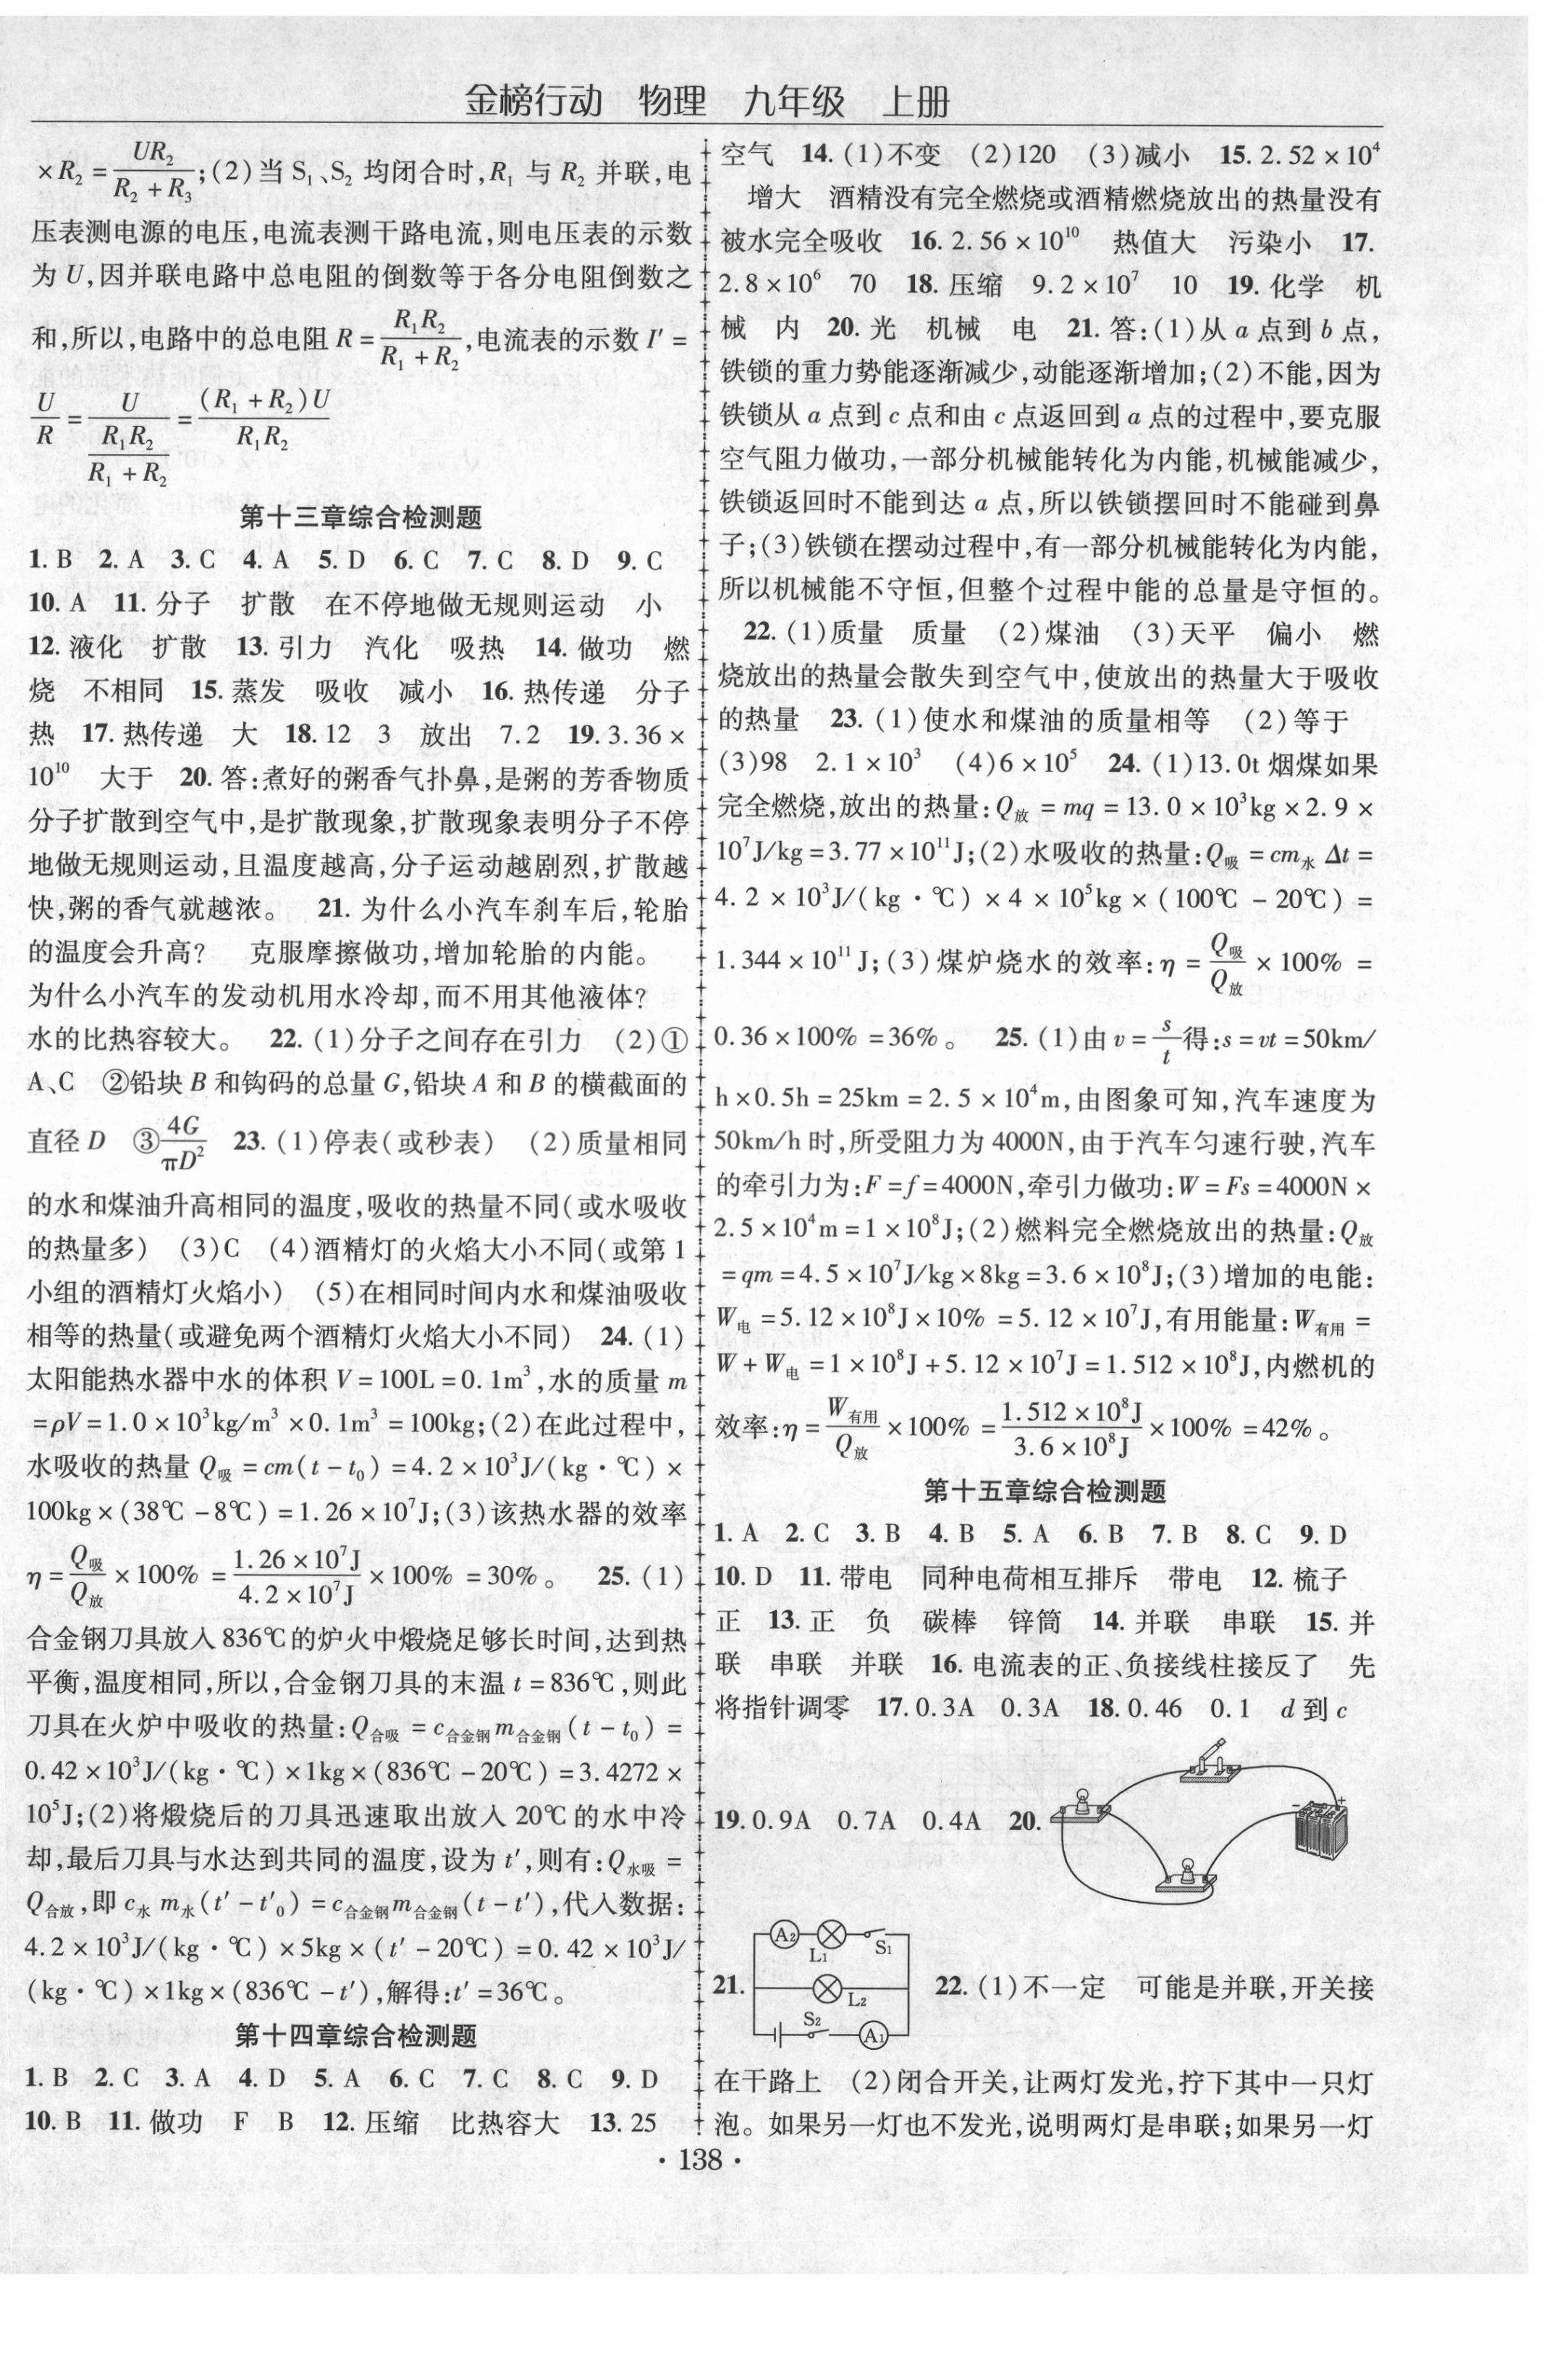 金榜行动　物理　九年级　上册
×R₂ = UR₂/(R₂ + R₃);(2)当 S₁、S₂ 均闭合时,R₁ 与 R₂ 并联,电
压表测电源的电压,电流表测干路电流,则电压表的示数
为 U,因并联电路中总电阻的倒数等于各分电阻倒数之
和,所以,电路中的总电阻 R = R₁R₂/(R₁ + R₂),电流表的示数 I′ =
U/R = U/(R₁R₂/(R₁ + R₂)) = (R₁ + R₂)U/(R₁R₂)
第十三章综合检测题
1. B　2. A　3. C　4. A　5. D　6. C　7. C　8. D　9. C
10. A　11. 分子　扩散　在不停地做无规则运动　小
12. 液化　扩散　13. 引力　汽化　吸热　14. 做功　燃
烧　不相同　15. 蒸发　吸收　减小　16. 热传递　分子
热　17. 热传递　大　18. 12　3　放出　7.2　19. 3.36 ×
10¹⁰　大于　20. 答:煮好的粥香气扑鼻,是粥的芳香物质
分子扩散到空气中,是扩散现象,扩散现象表明分子不停
地做无规则运动,且温度越高,分子运动越剧烈,扩散越
快,粥的香气就越浓。　21. 为什么小汽车刹车后,轮胎
的温度会升高?　克服摩擦做功,增加轮胎的内能。
为什么小汽车的发动机用水冷却,而不用其他液体?
水的比热容较大。　22. (1)分子之间存在引力　(2)①
A、C　②铅块 B 和钩码的总量 G,铅块 A 和 B 的横截面的
直径 D　③4G/(πD²)　23. (1)停表(或秒表)　(2)质量相同
的水和煤油升高相同的温度,吸收的热量不同(或水吸收
的热量多)　(3)C　(4)酒精灯的火焰大小不同(或第 1
小组的酒精灯火焰小)　(5)在相同时间内水和煤油吸收
相等的热量(或避免两个酒精灯火焰大小不同)　24. (1)
太阳能热水器中水的体积 V = 100L = 0.1m³,水的质量 m
= ρV = 1.0 × 10³kg/m³ × 0.1m³ = 100kg;(2)在此过程中,
水吸收的热量 Q吸 = cm(t − t₀) = 4.2 × 10³J/(kg · ℃) ×
100kg × (38℃ − 8℃) = 1.26 × 10⁷J;(3)该热水器的效率
η = Q吸/Q放 × 100% = 1.26 × 10⁷J/4.2 × 10⁷J × 100% = 30%。　25. (1)
合金钢刀具放入 836℃的炉火中煅烧足够长时间,达到热
平衡,温度相同,所以,合金钢刀具的末温 t = 836℃,则此
刀具在火炉中吸收的热量:Q合吸 = c合金钢m合金钢(t − t₀) =
0.42 × 10³J/(kg · ℃) × 1kg × (836℃ − 20℃) = 3.4272 ×
10⁵J;(2)将煅烧后的刀具迅速取出放入 20℃的水中冷
却,最后刀具与水达到共同的温度,设为 t′,则有:Q水吸 =
Q合放,即 c水 m水(t′ − t′₀) = c合金钢m合金钢(t − t′),代入数据:
4.2 × 10³J/(kg · ℃) × 5kg × (t′ − 20℃) = 0.42 × 10³J/
(kg · ℃) × 1kg × (836℃ − t′),解得:t′ = 36℃。
第十四章综合检测题
1. B　2. C　3. A　4. D　5. A　6. C　7. C　8. C　9. D
10. B　11. 做功　F　B　12. 压缩　比热容大　13. 25
空气　14. (1)不变　(2)120　(3)减小　15. 2.52 × 10⁴
增大　酒精没有完全燃烧或酒精燃烧放出的热量没有
被水完全吸收　16. 2.56 × 10¹⁰　热值大　污染小　17.
2.8 × 10⁶　70　18. 压缩　9.2 × 10⁷　10　19. 化学　机
械　内　20. 光　机械　电　21. 答:(1)从 a 点到 b 点,
铁锁的重力势能逐渐减少,动能逐渐增加;(2)不能,因为
铁锁从 a 点到 c 点和由 c 点返回到 a 点的过程中,要克服
空气阻力做功,一部分机械能转化为内能,机械能减少,
铁锁返回时不能到达 a 点,所以铁锁摆回时不能碰到鼻
子;(3)铁锁在摆动过程中,有一部分机械能转化为内能,
所以机械能不守恒,但整个过程中能的总量是守恒的。
22. (1)质量　质量　(2)煤油　(3)天平　偏小　燃
烧放出的热量会散失到空气中,使放出的热量大于吸收
的热量　23. (1)使水和煤油的质量相等　(2)等于
(3)98　2.1 × 10³　(4)6 × 10⁵　24. (1)13.0t 烟煤如果
完全燃烧,放出的热量:Q放 = mq = 13.0 × 10³kg × 2.9 ×
10⁷J/kg = 3.77 × 10¹¹J;(2)水吸收的热量:Q吸 = cm水 Δt =
4.2 × 10³J/(kg · ℃) × 4 × 10⁵kg × (100℃ − 20℃) =
1.344 × 10¹¹J;(3)煤炉烧水的效率:η = Q吸/Q放 × 100% =
0.36 × 100% = 36%。　25. (1)由 v = s/t 得:s = vt = 50km/
h × 0.5h = 25km = 2.5 × 10⁴m,由图象可知,汽车速度为
50km/h 时,所受阻力为 4000N,由于汽车匀速行驶,汽车
的牵引力为:F = f = 4000N,牵引力做功:W = Fs = 4000N ×
2.5 × 10⁴m = 1 × 10⁸J;(2)燃料完全燃烧放出的热量:Q放
= qm = 4.5 × 10⁷J/kg × 8kg = 3.6 × 10⁸J;(3)增加的电能:
W电 = 5.12 × 10⁸J × 10% = 5.12 × 10⁷J,有用能量:W有用 =
W + W电 = 1 × 10⁸J + 5.12 × 10⁷J = 1.512 × 10⁸J,内燃机的
效率:η = W有用/Q放 × 100% = 1.512 × 10⁸J/3.6 × 10⁸J × 100% = 42%。
第十五章综合检测题
1. A　2. C　3. B　4. B　5. A　6. B　7. B　8. C　9. D
10. D　11. 带电　同种电荷相互排斥　带电　12. 梳子
正　13. 正　负　碳棒　锌筒　14. 并联　串联　15. 并
联　串联　并联　16. 电流表的正、负接线柱接反了　先
将指针调零　17. 0.3A　0.3A　18. 0.46　0.1　d 到 c
19. 0.9A　0.7A　0.4A　20.
− +
A₂ L₁ S₁
21. L₂　22. (1)不一定　可能是并联,开关接
S₂ A₁
在干路上　(2)闭合开关,让两灯发光,拧下其中一只灯
泡。如果另一灯也不发光,说明两灯是串联;如果另一灯
· 138 ·